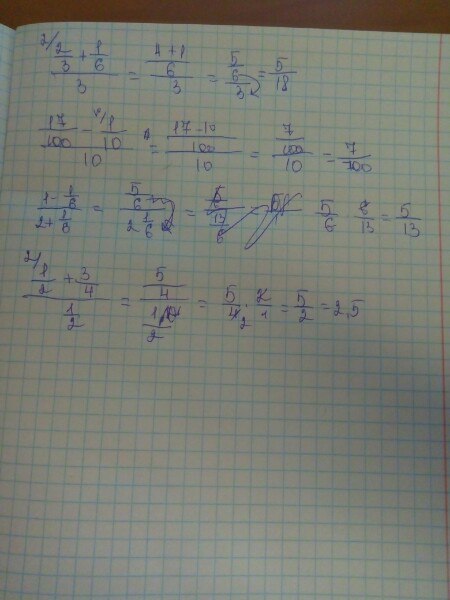 2/ (2/3 + 1/6)/3 = ((4+1)/6)/3 = (5/6)/3 = 5/18
(17/100 - 1/10)/10 = ((17-10)/100)/10 = (7/100)/10 = 7/100
(1-1/6)/(2+1/6) = (5/6)/(2 1/6) = (5/6)/(13/6) 5/6 6/13 = 5/13
2/ (1/2 + 3/4)/(1/2) = (5/4)/(1/2) = 5/4 2 · 2/1 = 5/2 = 2,5